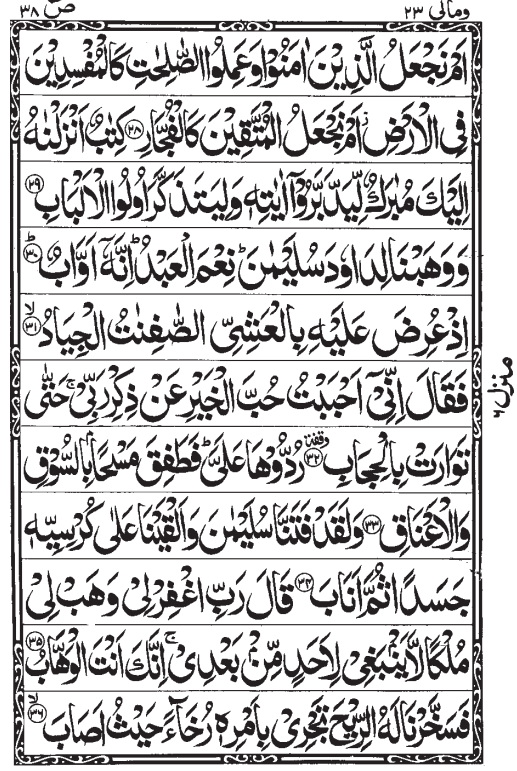 ومالی ٢٣ ص ٣٨
اَمْ نَجْعَلُ الَّذِيْنَ اٰمَنُوْا وَعَمِلُوا الصّٰلِحٰتِ كَالْمُفْسِدِيْنَ
فِى الْاَرْضِ ز اَمْ نَجْعَلُ الْمُتَّقِيْنَ كَالْفُجَّارِ ﴿٢٨﴾ كِتٰبٌ اَنْزَلْنٰهُ
اِلَيْكَ مُبٰرَكٌ لِّيَدَّبَّرُوْٓا اٰيٰتِهٖ وَلِيَتَذَكَّرَ اُولُوا الْاَلْبَابِ ﴿٢٩﴾
وَوَهَبْنَا لِدَاوٗدَ سُلَيْمٰنَ ؕ نِعْمَ الْعَبْدُ ؕ اِنَّهٗٓ اَوَّابٌ ؕ ﴿٣٠﴾
اِذْ عُرِضَ عَلَيْهِ بِالْعَشِىِّ الصّٰفِنٰتُ الْجِيَادُ ۙ ﴿٣١﴾
فَقَالَ اِنِّىْٓ اَحْبَبْتُ حُبَّ الْخَيْرِ عَنْ ذِكْرِ رَبِّىْ ۚ حَتّٰى
تَوَارَتْ بِالْحِجَابِ ﴿٣٢﴾ وقفة رُدُّوْهَا عَلَىَّ ؕ فَطَفِقَ مَسْحًۢا بِالسُّوْقِ
وَالْاَعْنَاقِ ﴿٣٣﴾ وَلَقَدْ فَتَنَّا سُلَيْمٰنَ وَاَلْقَيْنَا عَلٰى كُرْسِيِّهٖ
جَسَدًا ثُمَّ اَنَابَ ﴿٣٤﴾ قَالَ رَبِّ اغْفِرْ لِىْ وَهَبْ لِىْ
مُلْكًا لَّا يَنْۢبَغِىْ لِاَحَدٍ مِّنْۢ بَعْدِىْ ۚ اِنَّكَ اَنْتَ الْوَهَّابُ ﴿٣٥﴾
فَسَخَّرْنَا لَهُ الرِّيْحَ تَجْرِىْ بِاَمْرِهٖ رُخَآءً حَيْثُ اَصَابَ ۙ ﴿٣٦﴾
منزل ٦